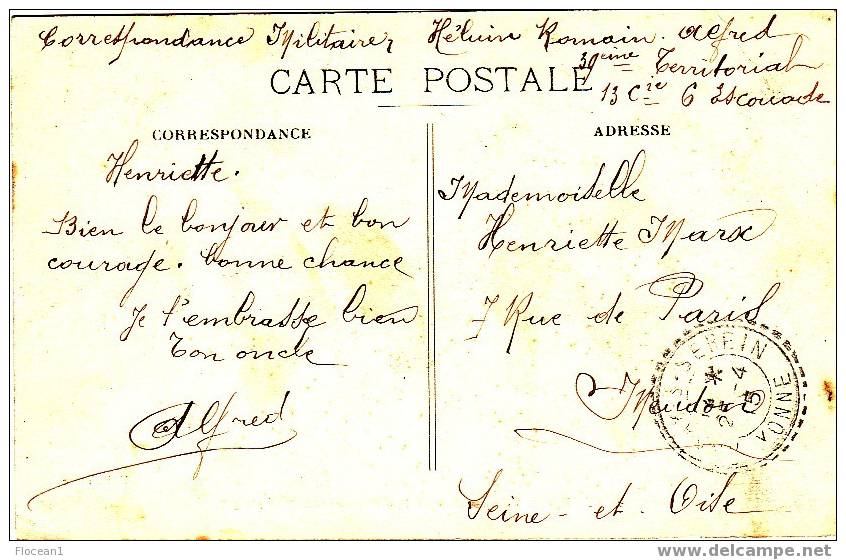 Correspondance Militaire, Héluin Romain Alfred
39eme Territorial
13 Cie 6 Escouade
CARTE POSTALE
CORRESPONDANCE
Henriette.
Bien le bonjour et bon
courage. bonne chance
Je t'embrasse bien
Ton oncle
Alfred
ADRESSE
Mademoiselle
Henriette Marx
7 Rue de Paris
Meudon
Seine-et Oise
SEREIN
YONNE
Flocean1
www.delcampe.net